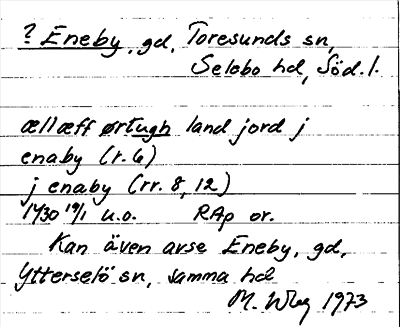 ? Eneby, gd, Toresunds sn,
Selebo hd, Söd. l.
ællæff ørtugh land jord j
enaby (r. 6)
j enaby (rr. 8, 12)
1430 19/1 u.o. RAp or.
Kan även avse Eneby, gd,
Ytterselö sn, samma hd
M. 1973